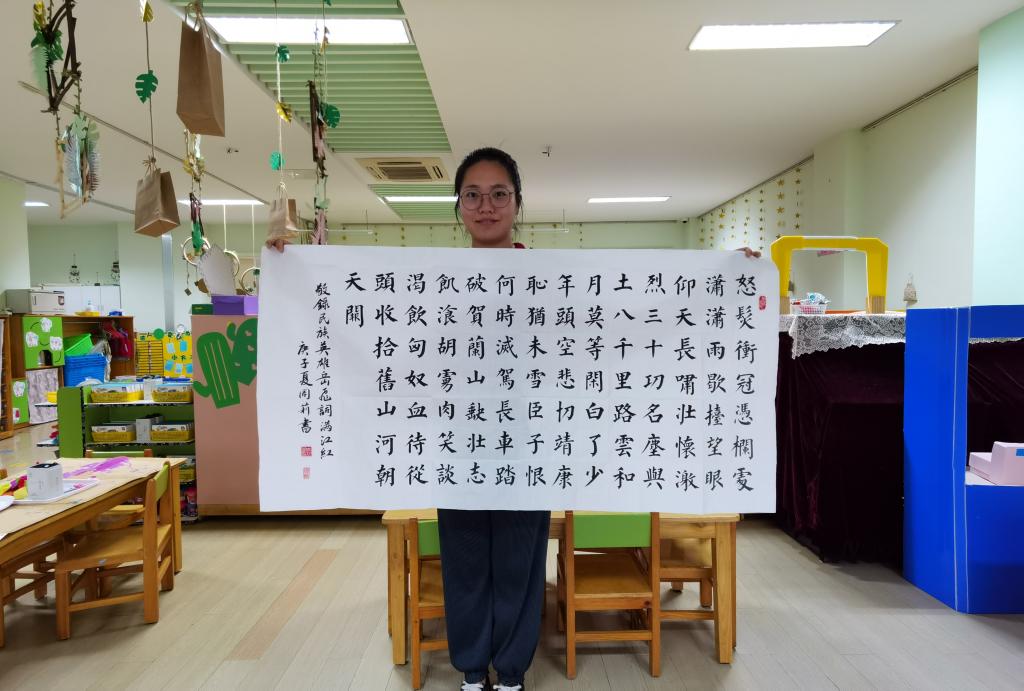 怒髮衝冠憑欄處
瀟瀟雨歇擡望眼
仰天長嘯壯懷激
烈三十功名塵與
土八千里路雲和
月莫等閑白了少
年頭空悲切靖康
恥猶未雪臣子恨
何時滅駕長車踏
破賀蘭山缺壯志
飢湌胡虜肉笑談
渴飲匈奴血待從
頭收拾舊山河朝
天闕
敬錄民族英雄岳飛詞滿江紅
庚子夏周莉書